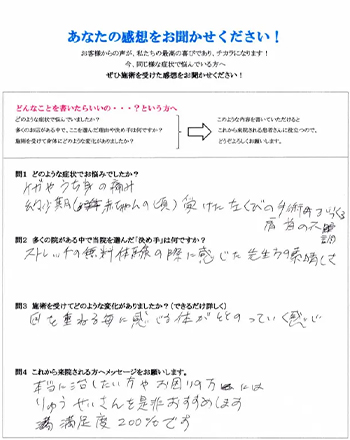 あなたの感想をお聞かせください!
お客様からの声が、私たちの最高の喜びであり、チカラになります!
今、同じ様な症状で悩んでいる方へ
ぜひ施術を受けた感想をお聞かせください!
どんなことを書いたらいいの・・・?という方へ
どのような症状で悩んでいましたか?
多くのお店がある中で、ここを選んだ理由や決め手は何ですか?
施術を受けて身体にどのような変化がありましたか?
このような内容を書いていただけると
これから来院される患者さんに役立つので、
どうぞよろしくお願いします。
問1 どのような症状でお悩みでしたか?
ケガやうち身の痛み
幼少期(赤ちゃんの頃)受けた左くびの手術の
肩首の不調
問2 多くの院がある中で当院を選んだ「決め手」は何ですか?
ストレッチの無料体験の際に感じた先生の
問3 施術を受けてどのような変化がありましたか?(できるだけ詳しく)
回を重ねる毎に感じる体がととのっていく感じ
問4 これから来院される方へメッセージをお願いします。
本当に治したい方やお困りの方には
りゅうせいさんを是非おすすめします
満足度200%です